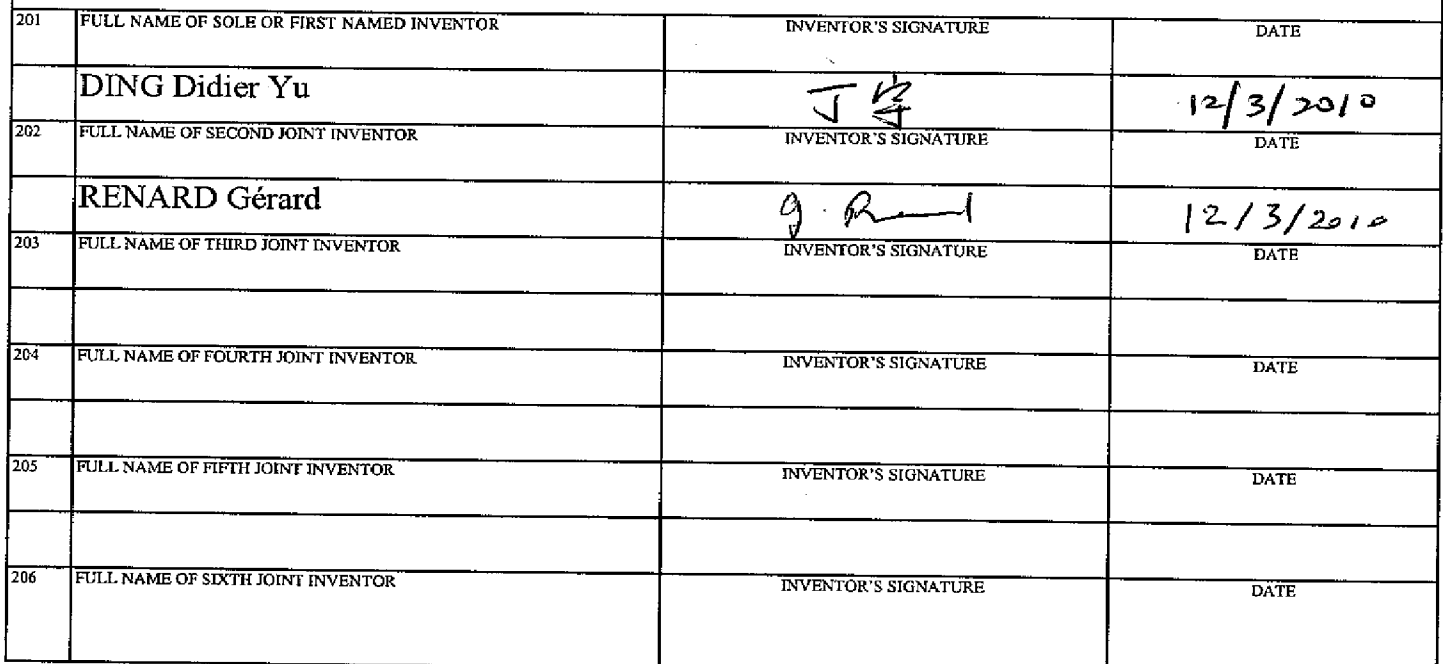 201 FULL NAME OF SOLE OR FIRST NAMED INVENTOR INVENTOR'S SIGNATURE DATE
DING Didier Yu 丁 12/3/2010
202 FULL NAME OF SECOND JOINT INVENTOR INVENTOR'S SIGNATURE DATE
RENARD Gérard g. 12/3/2010
203 FULL NAME OF THIRD JOINT INVENTOR INVENTOR'S SIGNATURE DATE
204 FULL NAME OF FOURTH JOINT INVENTOR INVENTOR'S SIGNATURE DATE
205 FULL NAME OF FIFTH JOINT INVENTOR INVENTOR'S SIGNATURE DATE
206 FULL NAME OF SIXTH JOINT INVENTOR INVENTOR'S SIGNATURE DATE